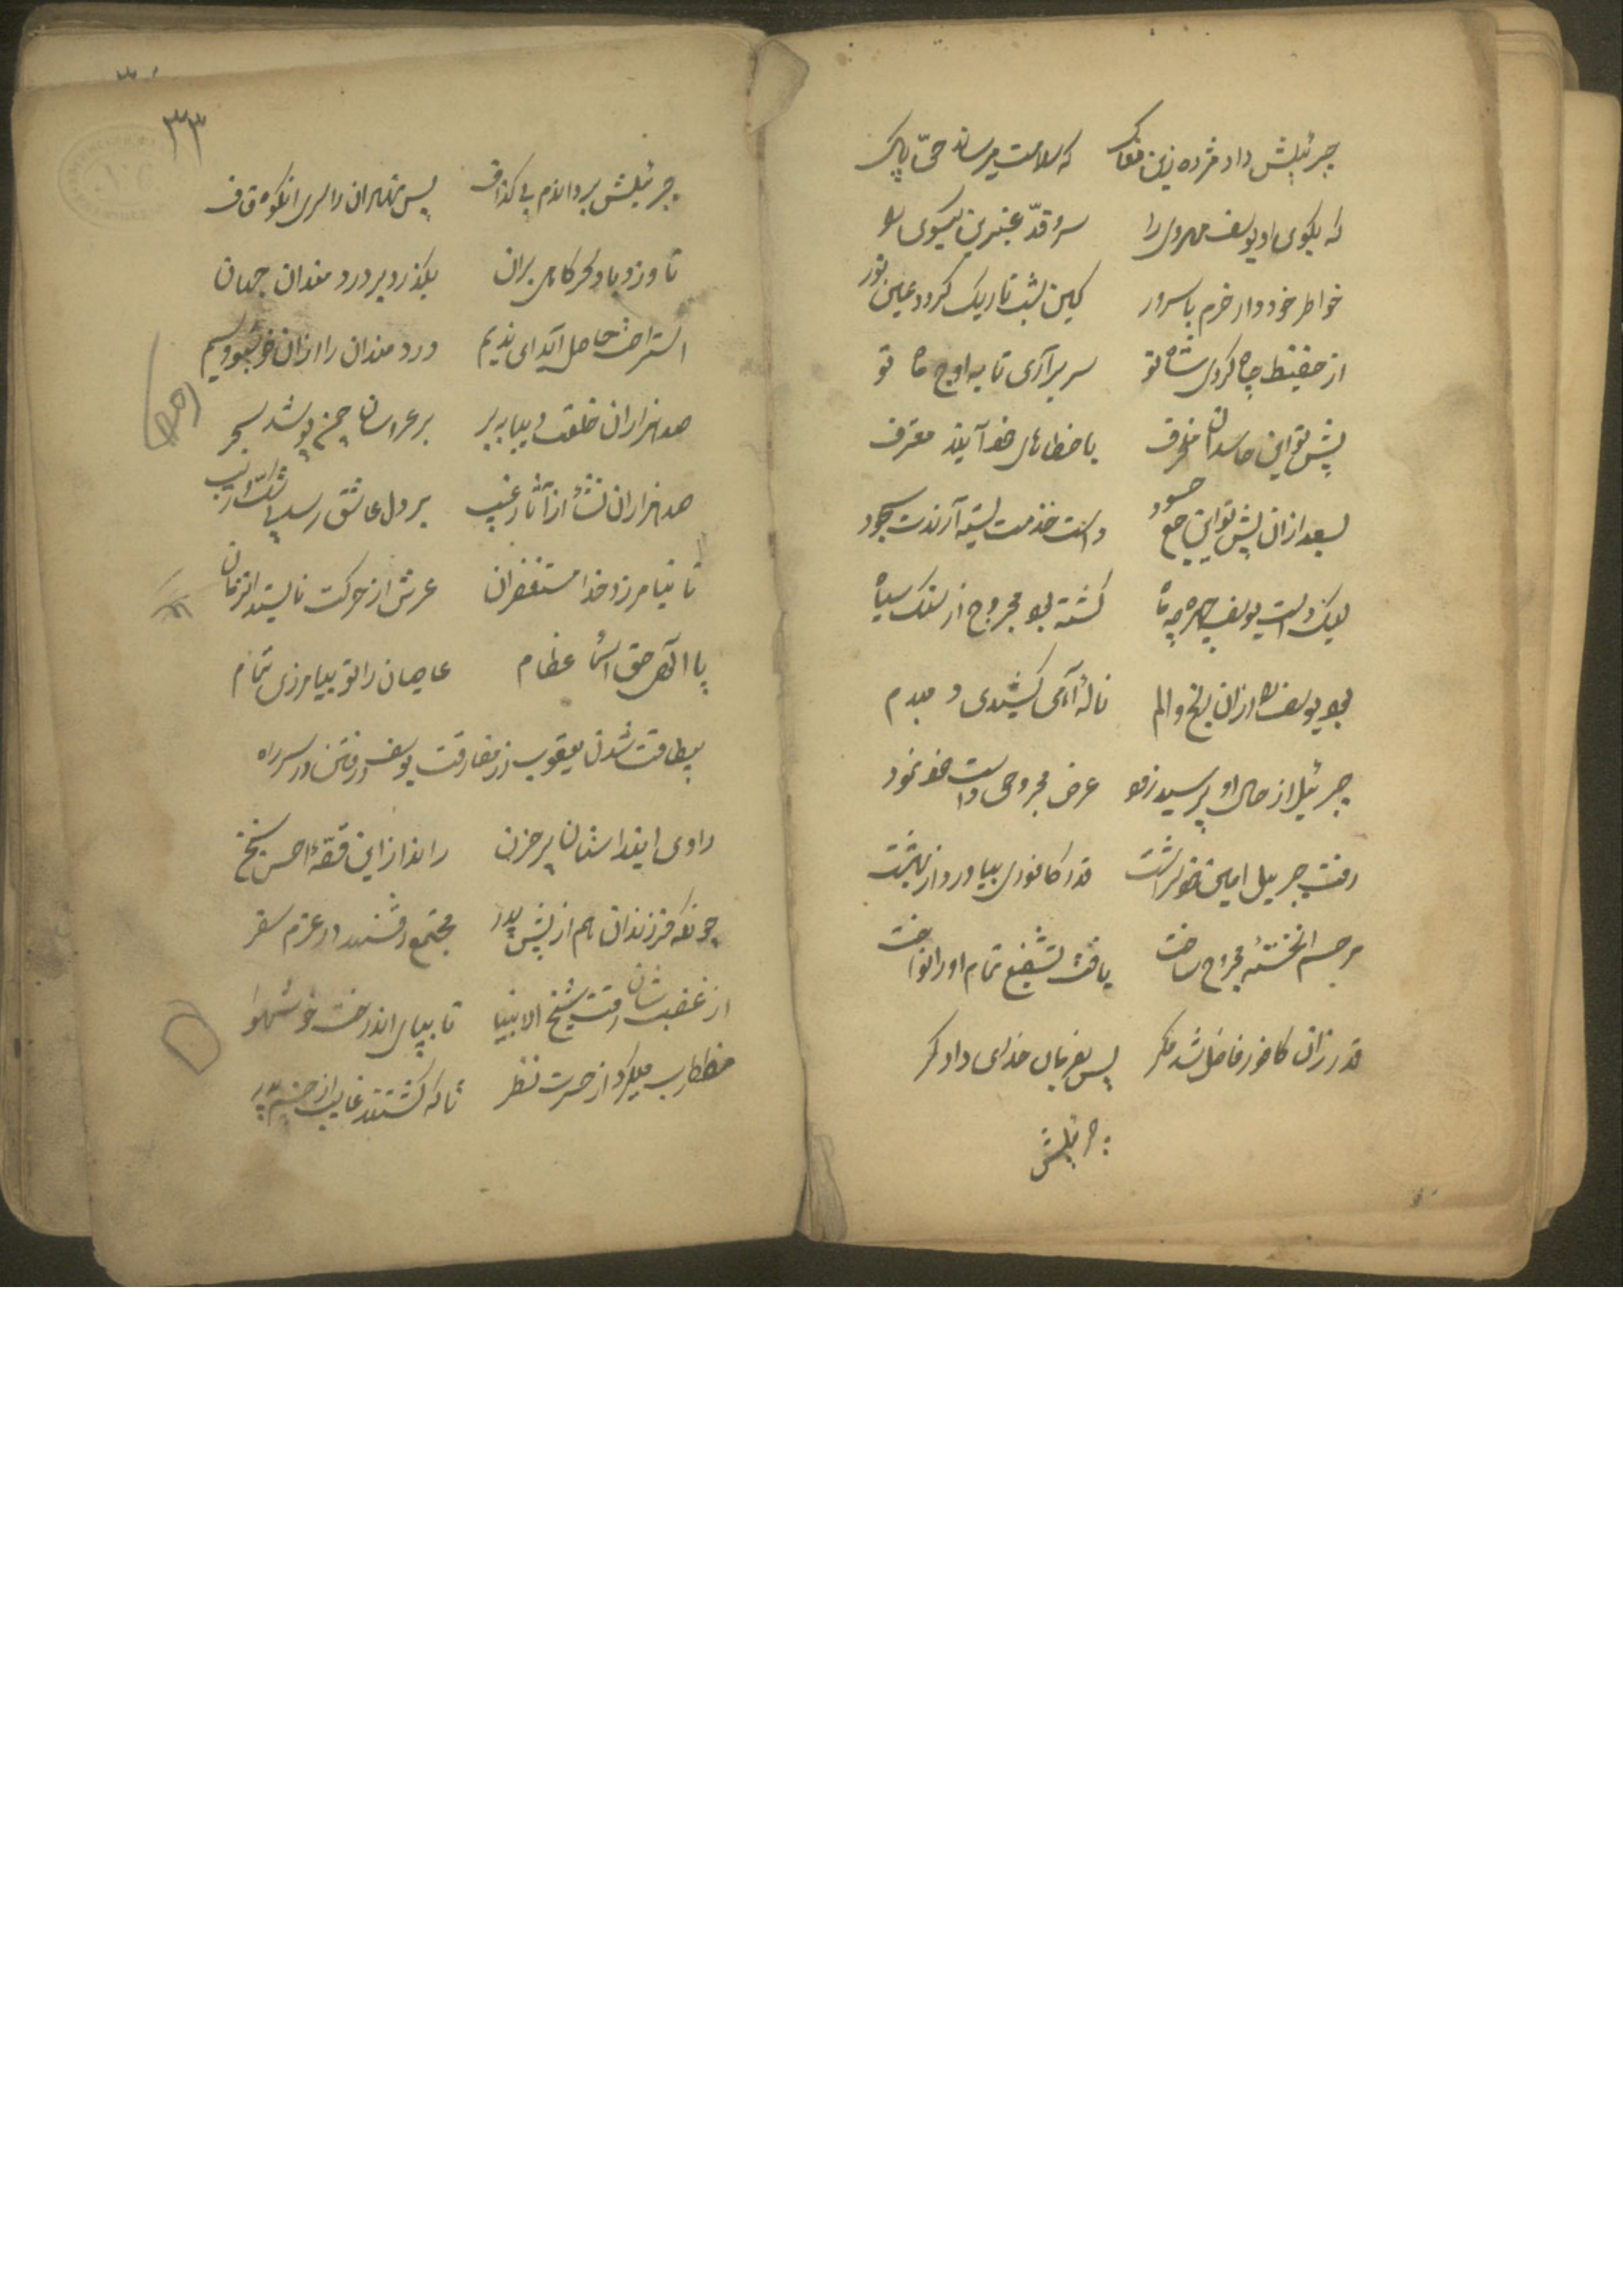 جبرئیلش داد مژده زین مغاک که سلامت میرساند حیّ پاک
که بگوی او یوسف مهروی را سرو قدّ عنبرین گیسوی را
خواطر خود دار خرم با سرور کین شب تاریک گردد عین نور
از حضیض چاه کردی شاه تو سر برآری تا به اوج ماه تو
پیش تو این حاسدان منحرف با خطاهای خود آیند معترف
بعد ازان پیش تو این جمع حسود دست خدمت بسته آرندت سجود
لیک دست یوسف چهره چه ماه گشته بود مجروح از سنگ سیاه
بود یوسف زان رنج و الم نالهٔ آهی کشیدی دمبدم
جبرئیل از حال او پرسید زود عرض مجروحی دست خود نمود
رفت جبریل امین قدر کافوری بیاورد از بهشت
مجروح ساخت یافت تمام او را نواخت
قدر زان کافور فاضل شد مگر پس بفرمان خدای دادگر
جبرئیلش
۳۳
جبرئیلش برد اندم بی گذاف پس نهران را سرای کوه قاف
تا وزد باد سحرگاهی بران بگذرد بر دردمندان جهان
استراحت حاصل آید ای ندیم دردمندان را ازان خوشبو نسیم
صد هزاران خلعت دیبا به بر بر عروسان چمن پوشد سحر
صد هزاران نشأ از آثار غیب بر دل عاشق رسد
تا نیامرزد خدا مستغفران عرش از حرکت نایستد انزمان
یا الهی حق اسماء عظام عاصیان را تو بیامرزی تمام
بیطاقت شدن یعقوب از مفارقت یوسف و رفتن در سر راه
راوی این داستان پر حزن راند از این قصّهٔ احسن سخن
چونکه فرزندان هم از پیش پدر مجتمع رفتند در عزم سفر
از عقب شان رفت شیخ الانبیا تا بپای اندرخت
میکرد از حسرت نظر تا که گشتند غایب از چشم پدر